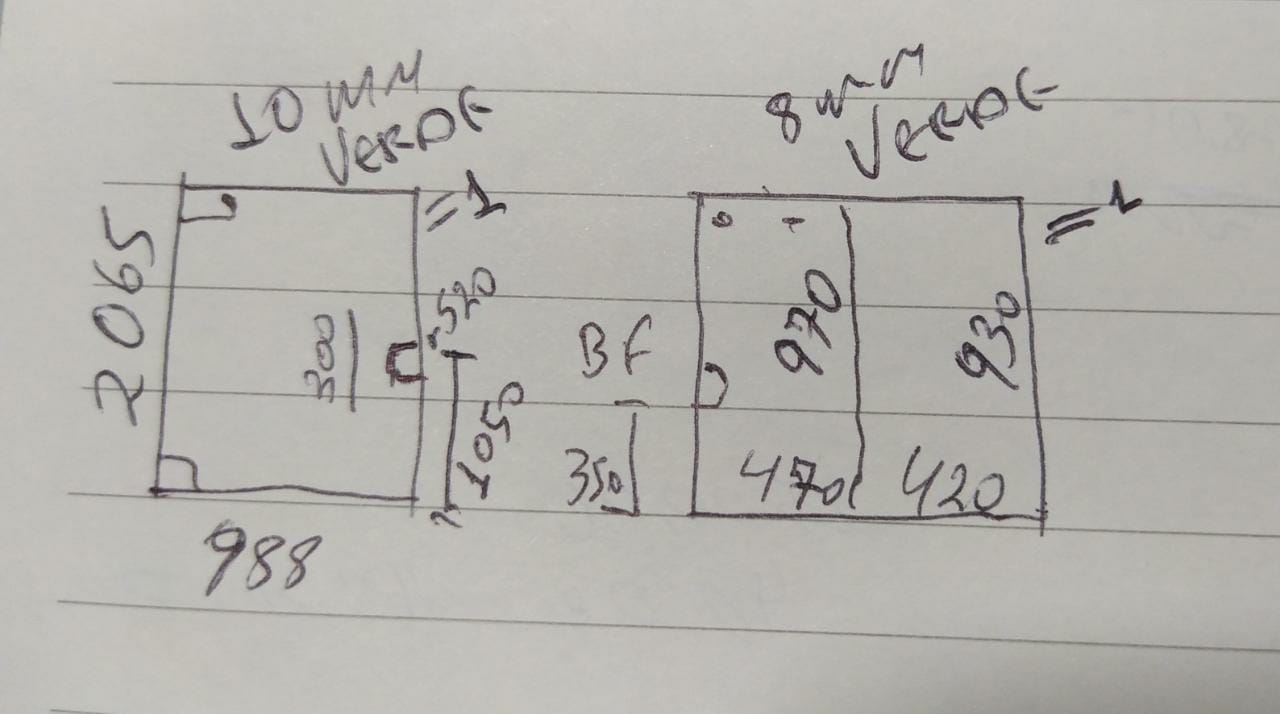 10 MM
VERDE
=1
2065
300
520
1050
988
8 mm
VERDE
=1
BF
350
970
930
470
420